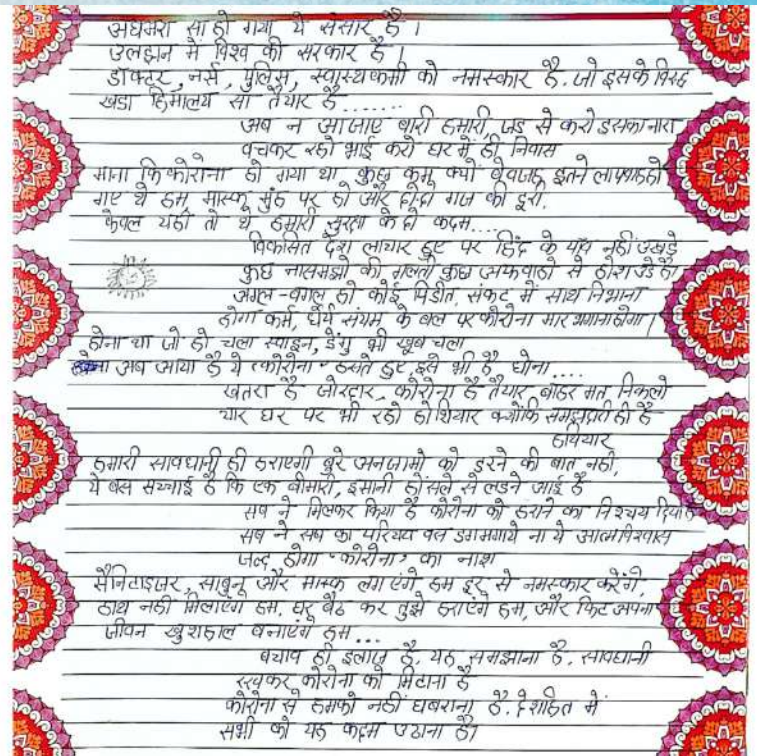 अधमरा सा हो गया ये संसार है ।
उलझन में विश्व की सरकार है ।
डॉक्टर, नर्स, पुलिस, स्वास्थ्यकर्मी को नमस्कार है. जो इसके विरुद्ध
खडा हिमालय सा तैयार है.......
अब न आ जाए बारी हमारी, जड से करो इसका नाश
बचकर रहो भाई करो घर में ही निवास
माना कि कोरोना हो गया था कुछ कम क्यों बेवजह इतने लापरवाह हो
गए थे हम, मास्क मुंह पर हो और दो-दो गज की दूरी.
केवल यही तो थे हमारी सुरक्षा के दो कदम....
विकसित देश लाचार हुए पर हिंद के पाँव नहीं उखड़े
कुछ नासमझो की गलती कुछ अफवाहो से होश उडे है।
अगल-बगल हो कोई पिडीत, संकट में साथ निभाना
होगा कर्म, धैर्य संयम के बल पर कोरोना मार भगाना होगा ।
होना था जो हो चला स्वाइन, डेंगु भी खूब चला
अब आया है ये 'कोरोना' हसते हुए इसे भी है धोना....
खतरा है जोरदार, कोरोना है तैयार, बाहर मत निकलो
यार घर पर भी रहो होशियार क्योंकि समझदारी ही है
हथियार
हमारी सावधानी ही हराएगी बुरे अनजामो को डरने की बात नही,
ये बस सच्चाई है कि एक बीमारी, इंसानी हौंसले से लडने आई है
सब ने मिलकर किया है कोरोना को हराने का निश्चय दिया है
सब ने सब का परिचय बस डगमगाये ना ये आत्मविश्वास
जल्द होगा 'कोरोना' का नाश
सैनिटाइजर, साबुन और मास्क लगाएंगे हम दूर से नमस्कार करेंगे,
हाथ नही मिलाएंगे हम. घर बैठ कर तुझे हराएंगे हम, और फिट अपना
जीवन खुशहाल बनाएंगे हम...
बचाव ही इलाज है, यह समझाना है. सावधानी
रखकर कोरोना को मिटाना है
कोरोना से हमको नहीं घबराना है. देशहित में
सभी को यह कदम उठाना है।